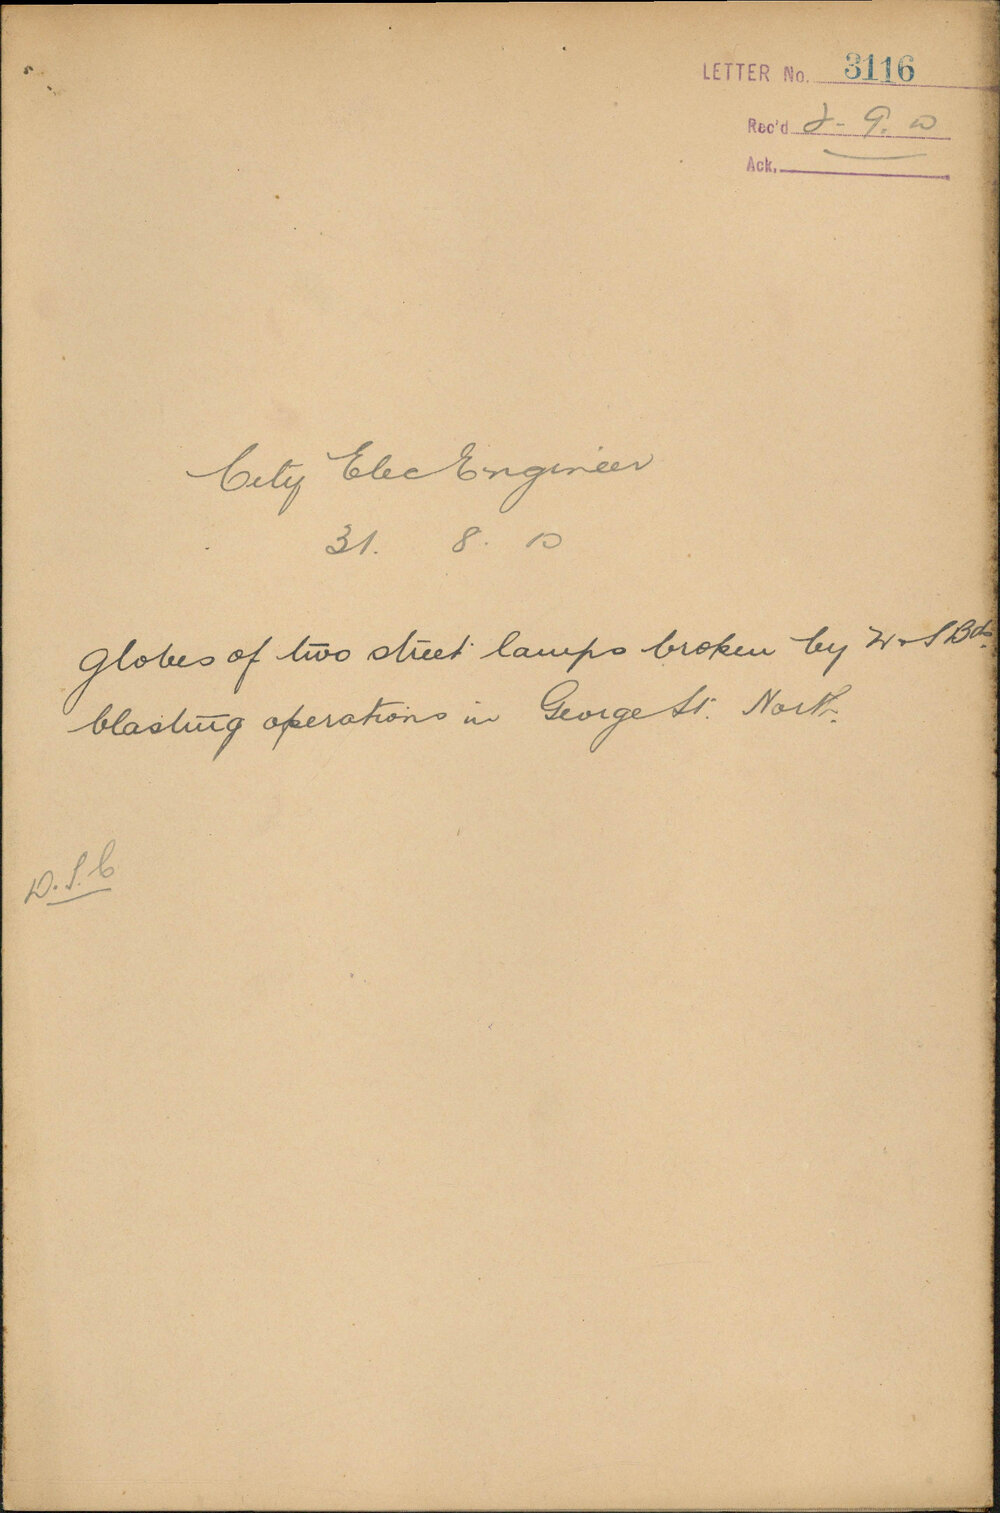 LETTER No. 3116
Rec'd 2-9. 10
Ack.
City Elec Engineer
31. 8. 10
Globes of two street lamps broken by W & S Bds.
blasting operations in George St. North.
D.S.C